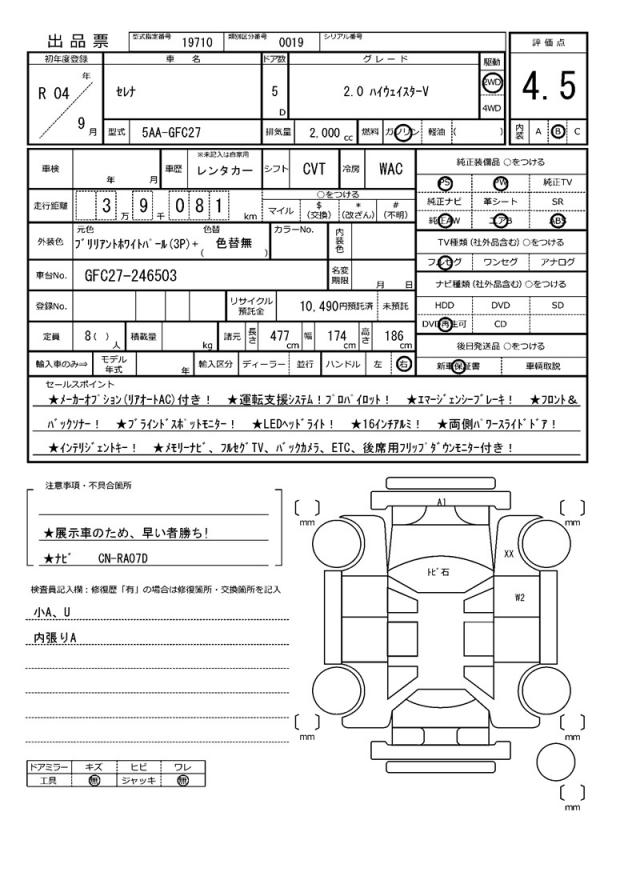 出品票 型式指定番号 19710 類別区分番号 0019 シリアル番号
初年度登録 車名 ドア数 グレード 駆動 評価点
R 04 年 9 月 セレナ 5 D 2.0 ハイウェイスターV 2WD 4WD 4.5
型式 5AA-GFC27 排気量 2,000 cc 燃料 ガソリン 軽油 ( ) 内装 A B C
車検 年 月 車歴 ※未記入は自家用 レンタカー シフト CVT 冷房 WAC 純正装備品 ○をつける
PS PW 純正TV
走行距離 3 万 9 千 081 km ○をつける
マイル $ (交換) * (改ざん) # (不明) 純正ナビ 革シート SR
純正AW エアB ABS
外装色 元色 ブリリアントホワイトパール(3P)+ 色替 ( 色替無 ) カラーNo. 内装色 TV種類 (社外品含む) ○をつける
フルセグ ワンセグ アナログ
車台No. GFC27-246503 名変期限 月 日 ナビ種類 (社外品含む) ○をつける
登録No. リサイクル預託金 10,490円預託済 未預託 HDD DVD SD
DVD再生可 CD
定員 8( )人 積載量 kg 諸元 長さ 477 cm 幅 174 cm 高さ 186 cm 後日発送品 ○をつける
輸入車のみ⇒ モデル年式 年 輸入区分 ディーラー 並行 ハンドル 左 右 新車保証書 車輌取説
セールスポイント
★メーカーオプション(リアオートAC)付き! ★運転支援システム!プロパイロット! ★エマージェンシーブレーキ! ★フロント&
バックソナー! ★ブラインドスポットモニター! ★LEDヘッドライト! ★16インチアルミ! ★両側パワースライドドア!
★インテリジェントキー! ★メモリーナビ、フルセグTV、バックカメラ、ETC、後席用フリップダウンモニター付き!
注意事項・不具合箇所
★展示車のため、早い者勝ち!
★ナビ CN-RA07D
検査員記入欄:修復歴「有」の場合は修復箇所・交換箇所を記入
小A、U
内張りA
A1
mm
mm
XX
トビ石
W2
mm
mm
mm
ドアミラー キズ ヒビ ワレ
工具 無 ジャッキ 無